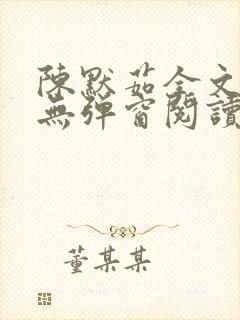 陳默茹全文
無彈窗閱讀
董某某